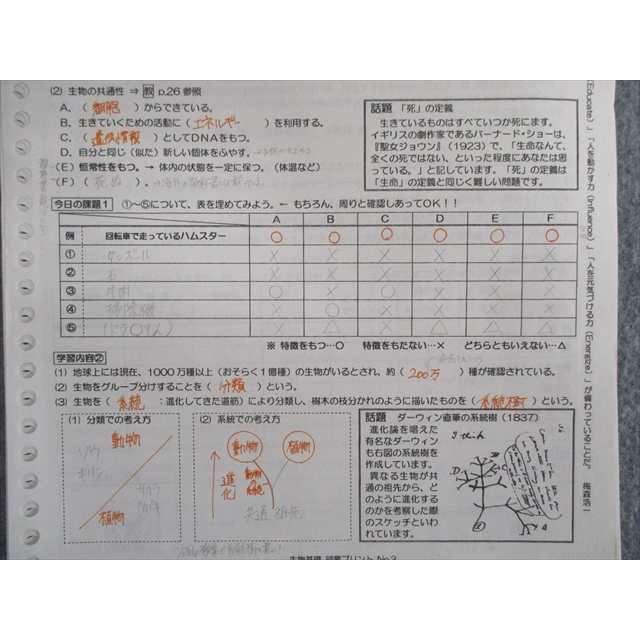 (2) 生物の共通性 ⇒ 教 p.26 参照
A. ( 細胞 ) からできている。
B. 生きていくための活動に ( エネルギー ) を利用する。
C. ( 遺伝情報 ) としてDNAをもつ。
D. 自分と同じ（似た）新しい個体をふやす。
(E) 恒常性をもつ。→ 体内の状態を一定に保つ。（体温など）
(F) ( 死ぬ )
話題 「死」の定義
生きているものはすべていつか死にます。
イギリスの劇作家であるバーナード・ショーは、
『聖女ジョウン』（1923）で、「生命なんて、
全くの死ではない、といった程度にあなたは思
っている。」と記しています。「死」の定義は
「生命」の定義と同じく難しい問題です。
今日の課題1 ①～⑤について、表を埋めてみよう。← もちろん、周りと確認しあってOK！！
A B C D E F
例 回転車で走っているハムスター ○ ○ ○ ○ ○ ○
① × × × × × ×
② 石 × × × × × ×
③ ○ × ○ × × ×
④ 掃除機 × ○ × × × ×
⑤ × △ × △ △ △
※ 特徴をもつ…○ 特徴をもたない…× どちらともいえない…△
学習内容②
(1) 地球上には現在、1000万種以上（おそらく1億種）の生物がいるとされ、約 ( 200万 ) 種が確認されている。
(2) 生物をグループ分けすることを ( 分類 ) という。
(3) 生物を ( 系統 ：進化してきた道筋) により分類し、樹木の枝分かれのように描いたものを ( 系統樹 ) という。
(1) 分類での考え方
動物
ゾウ
キリン
サクラ
植物
(2) 系統での考え方
動物 植物
進化
共通祖先
話題 ダーウィン直筆の系統樹（1837）
進化論を唱えた
有名なダーウィン
も右図の系統樹を
作成しています。
異なる生物が共
通の祖先から、ど
のように進化する
のかを考察した際
のスケッチといわ
れています。
I think
生物基礎 授業プリント No.3
(Educate)」「人を動かす力（Influence）」「人を元気づける力（Energize）」が備わっていることだ。 梅森浩一